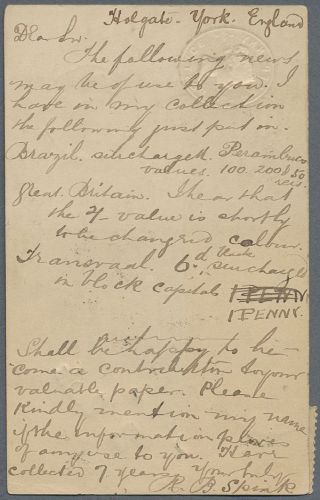 Holgate - York. England
Dear Sir.
The following news
may be of use to you. I
have in my collection
the following just put in.
Brazil. surcharged. Pernambuco
values. 100. 200 & 50
reis.
Great. Britain. I hear that
the 2/- value is shortly
to be changed colour.
Transvaal. 6d surcharged
in block capitals 1 PENNY
1 PENNY.
Shall be happy to be-
come a contributor to your
valuable paper. Please
kindly mention my name
if the information proves
of any use to you. Have
collected 7 years. Yours truly
R B Spink